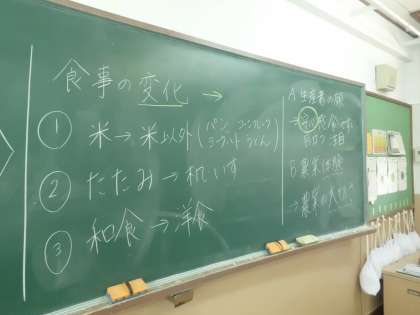 食事の変化 →
① 米→米以外(パン コーンフレーク
ヨーグルト うどん)
② たたみ→机 いす
③ 和食→洋食
A 生産者の
B 農業体験
→農業の大切さ